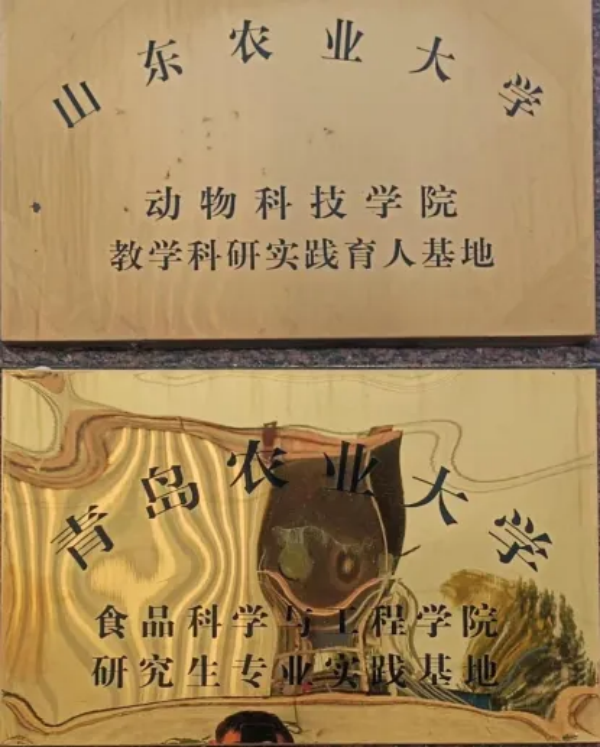 山东农业大学
动物科技学院
教学科研实践育人基地
青岛农业大学
食品科学与工程学院
研究生专业实践基地